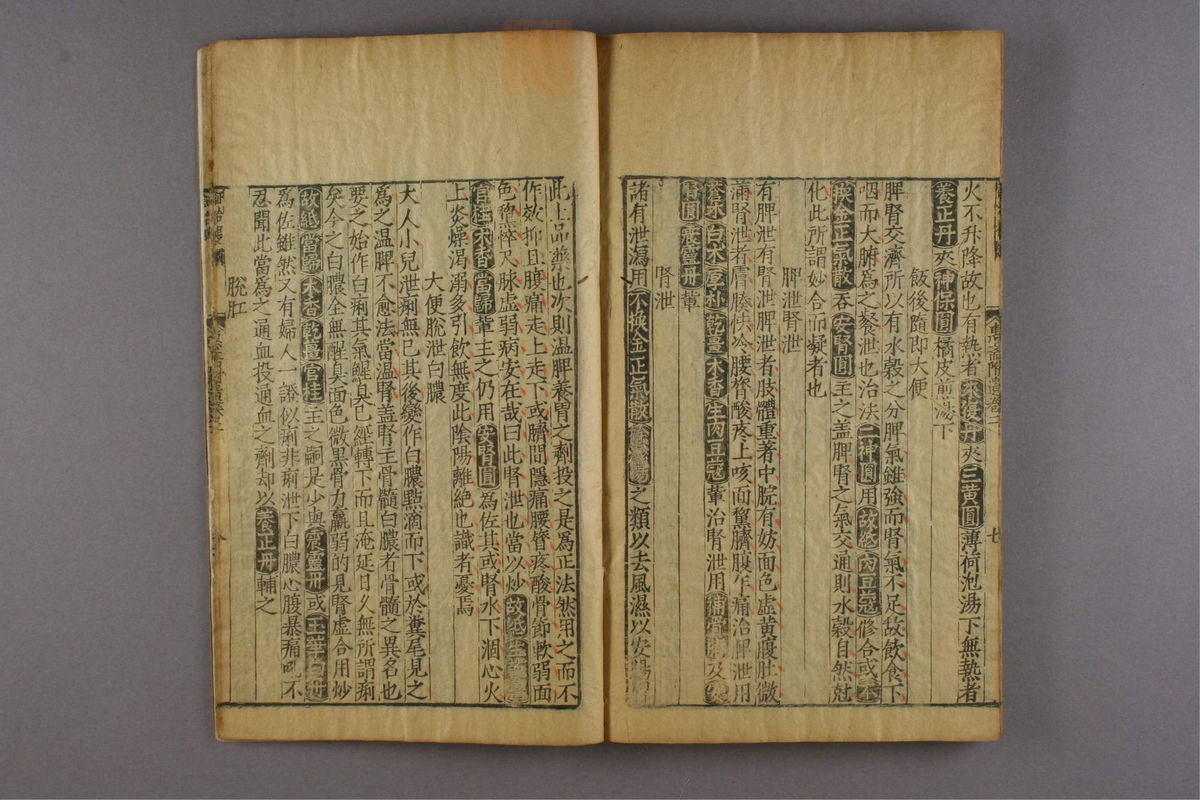 火不升降故也有熱者來復丹夾三黃圓薄荷泡湯下無熱者
養正丹夾神保圓橘皮煎湯下
飯後隨即大便
脾腎交濟所以有水穀之分脾氣雖強而腎氣不足故飲食下
咽而大腑為之飱泄也治法二神圓用故紙肉豆蔻修合或不
換金正氣散吞安腎圓主之盖脾腎之氣交通則水穀自然尅
化此所謂妙合而凝者也
脾泄腎泄
有脾泄有腎泄脾泄者肢體重著中脘有妨面色虛黃腹肚微
滿腎泄者膚腠怯冷腰膂酸疼上咳面黧臍腹乍痛治脾泄用
蒼朮白朮厚朴乾薑木香生肉豆蔻軰治腎泄用補骨脂及安
腎圓震靈丹軰
腎泄
諸有泄瀉用不換金正氣散之類以去風濕以安腸
此上品藥也次則温脾養胃之劑投之是爲正法然用之而不
作效抑且腹痛走上走下或臍間隱痛腰膂疼酸骨節軟弱面
色黧悴尺脉虛弱病安在哉曰此腎泄也當以炒故紙生
官桂木香當歸軰主之仍用安腎圓為佐其或腎水下涸心火
上炎燥渴溺多引飲無度此陰陽離絶也識者憂焉
大便脫泄白膿
大人小兒泄痢無已其後變作白膿㸃滴而下或於糞尾見之
爲之温脾不愈法當温腎盖腎主骨髓白膿者骨髓之異名也
要之始作白痢其氣腥臭已經轉下而且淹延日久無所謂痢
矣今之白膿全無腥臭面色微黑骨力羸弱的見腎虛合用炒
故紙當歸木香乾薑官桂主之嗣是少與震靈丹或玉華白丹
為佐雖然又有婦人一證似痢非痢泄下白膿心腹暴痛吼不
忍聞此當為之通血投通血之劑却以養正丹輔之
脫肛